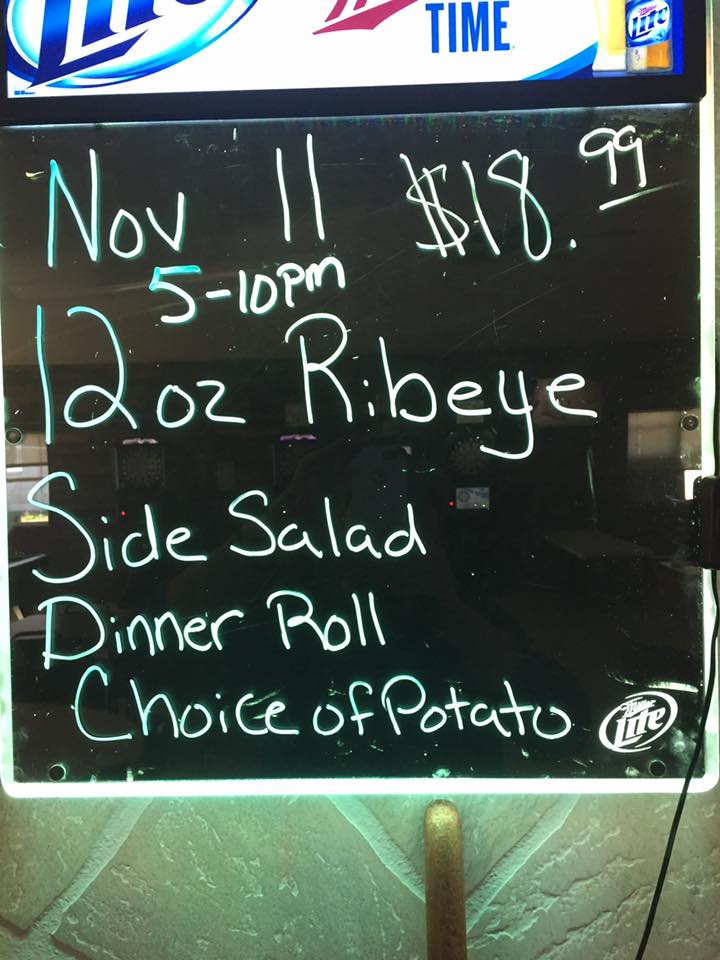 Lite
TIME
Miller Lite
Nov 11 $18.99
5-10pm
12oz Ribeye
Side Salad
Dinner Roll
Choice of Potato
Miller Lite